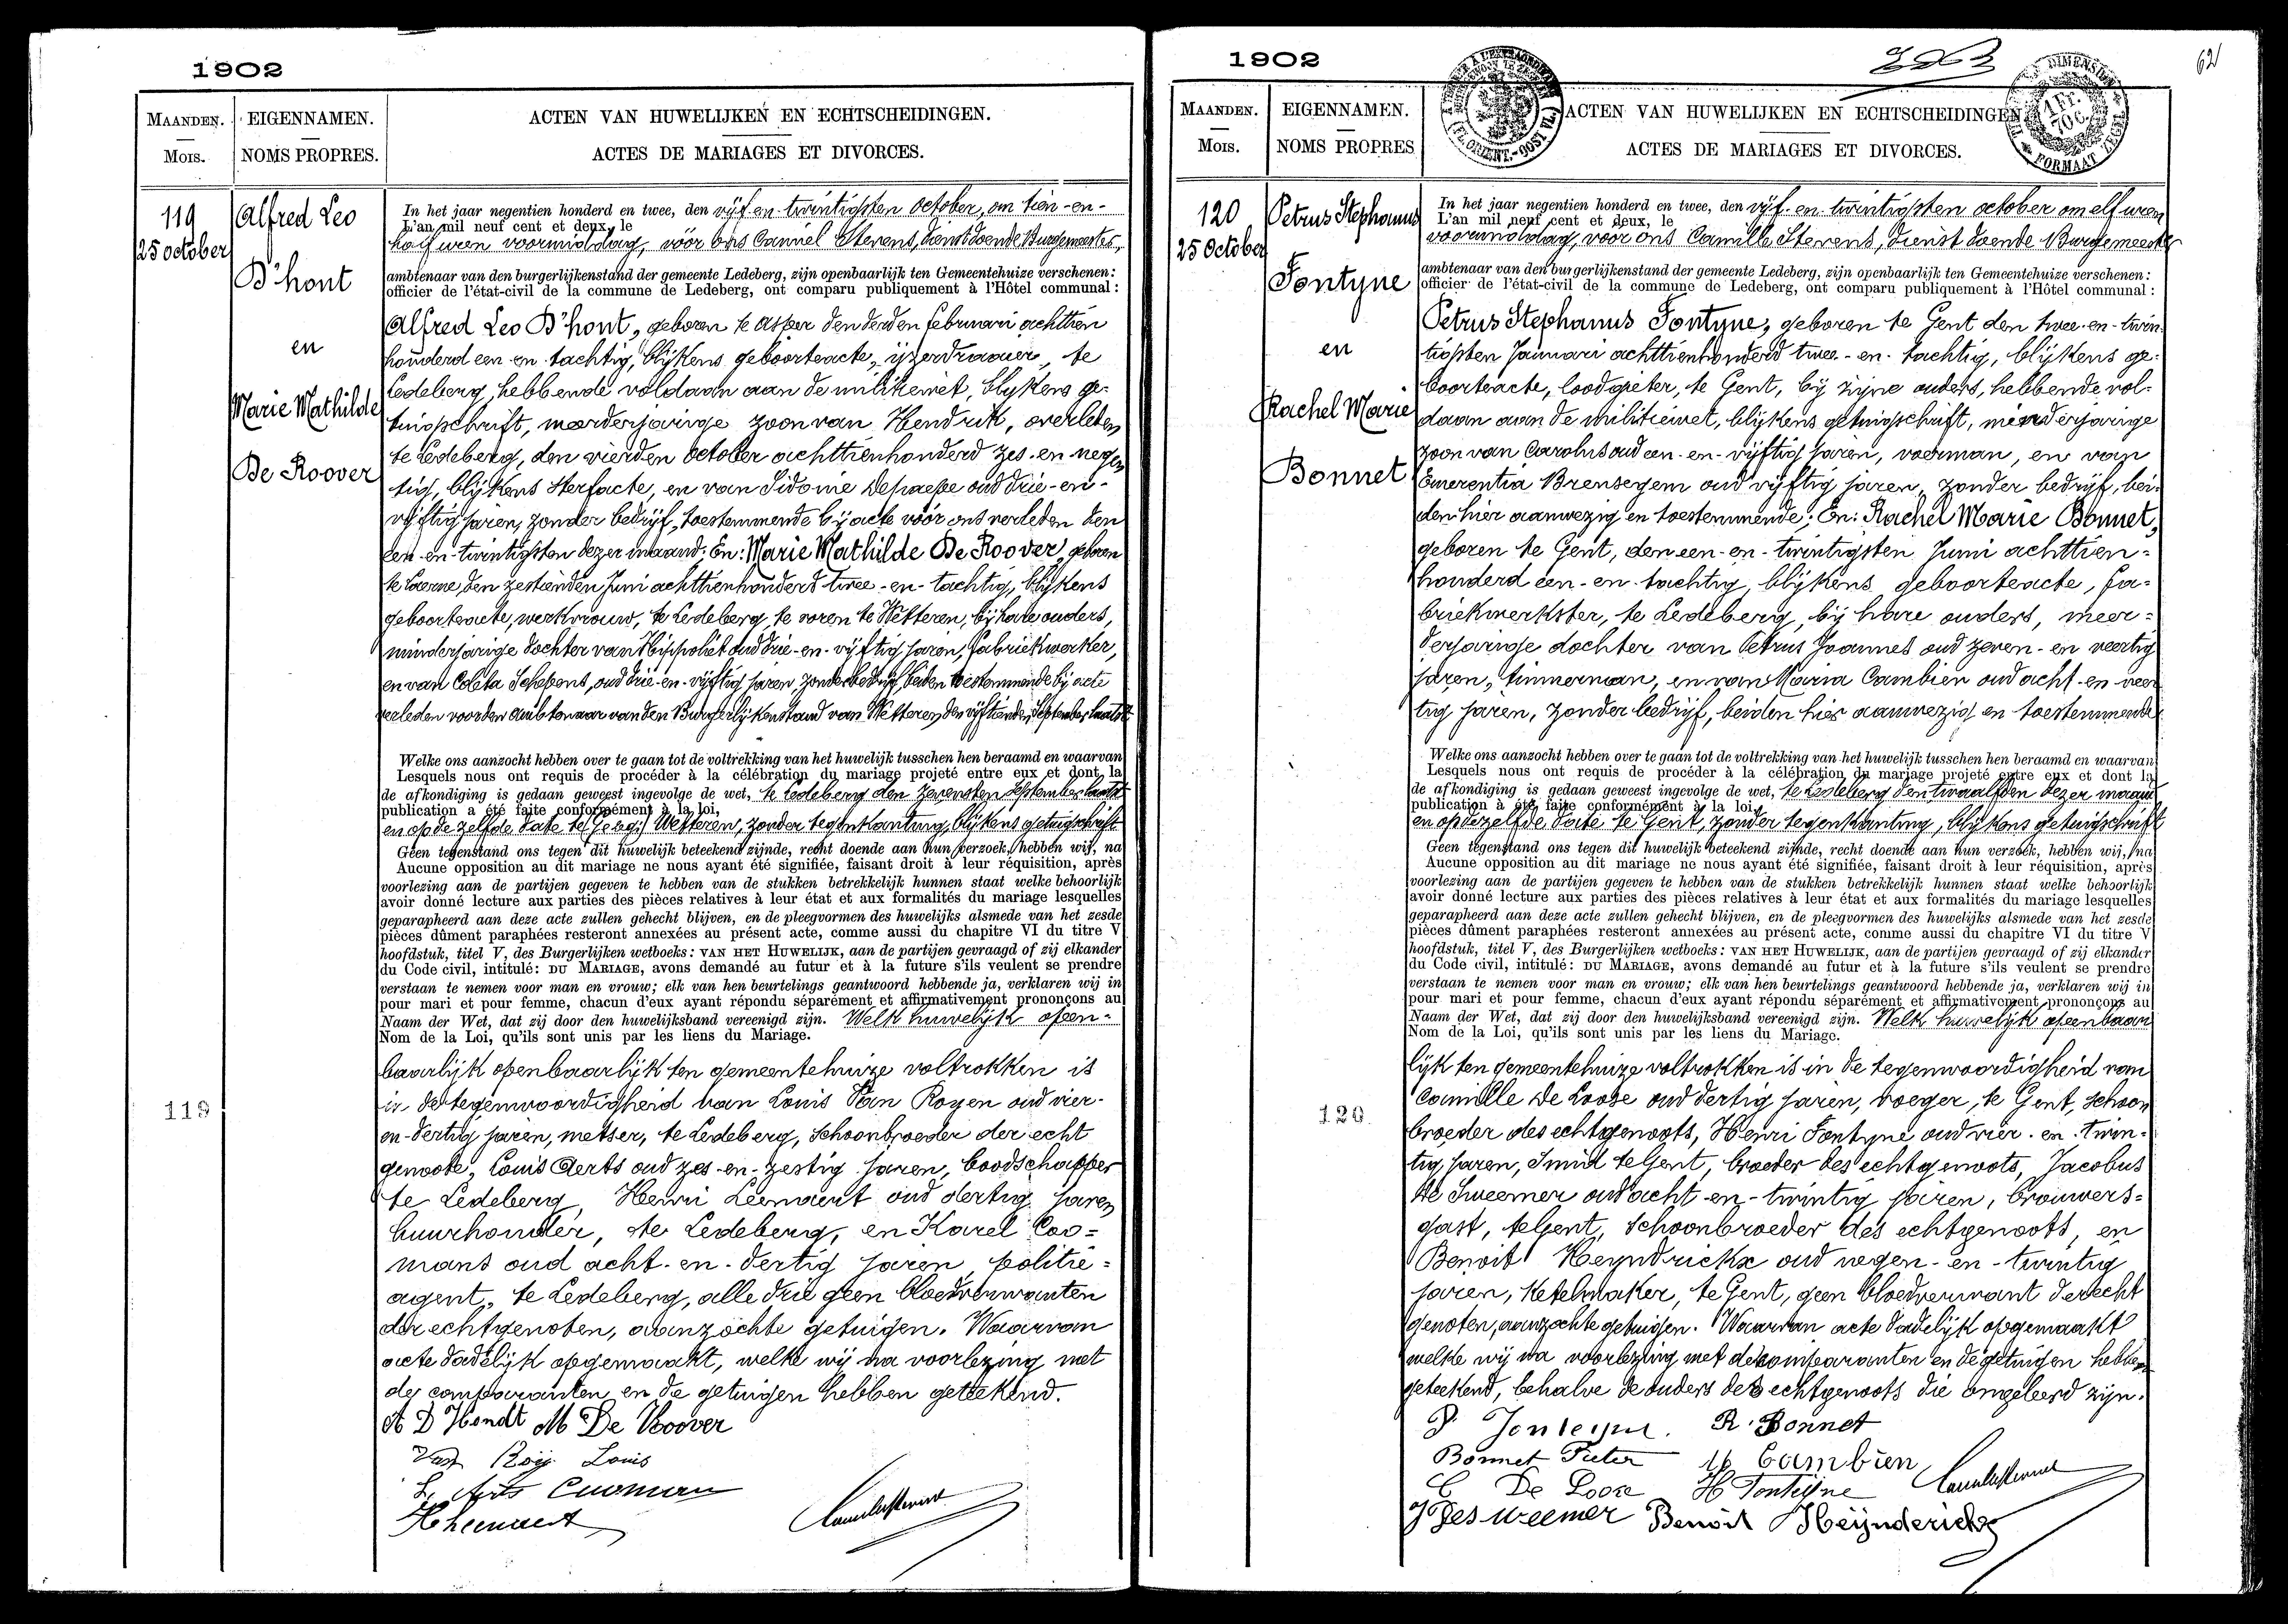 1902
MAANDEN.
Mois.
EIGENNAMEN.
NOMS PROPRES.
ACTEN VAN HUWELIJKEN EN ECHTSCHEIDINGEN.
ACTES DE MARIAGES ET DIVORCES.
119
25 october
Alfred Leo
D'hont
en
Marie Mathilde
De Roover
In het jaar negentien honderd en twee, den vijf en twintigsten October, om tien-en-
L'an mil neuf cent et deux, le
half uren voormiddag, vóór ons Camiel Stevens, dienstdoende Burgemeester,
ambtenaar van den burgerlijkenstand der gemeente Ledeberg, zijn openbaarlijk ten Gemeentehuize verschenen:
officier de l'état-civil de la commune de Ledeberg, ont comparu publiquement à l'Hôtel communal:
Alfred Leo D'hont, geboren te Asper den derden februari achttien
honderd een-en-tachtig, blijkens geboorteacte, ijzerdraaier, te
Ledeberg, hebbende voldaan aan de militiewet, blykens ge-
tuigschrift, meerderjarige zoon van Hendrik, overleden
te Ledeberg, den vierden October achttienhonderd zes-en-negen
tig, blijkens sterfacte, en van Sidonie Depaepe oud drie-en-
vijftig jaren, zonder bedrijf, toestemmende bij acte vóór ons verleden den
een-en-twintigsten dezer maand; En: Marie Mathilde De Roover, geboren
te Laerne, den zestienden Juni achttienhonderd twee-en-tachtig, blijkens
geboorteacte, werkvrouw, te Ledeberg, te voren te Wetteren, bij hare ouders,
minderjarige dochter van Hippoliet oud drie-en-vijftig jaren, fabriekwerker,
en van Coleta Schepens, oud drie-en-vijftig jaren, zonder bedrijf, beiden toestemmende bij acte
verleden voor den ambtenaar van den Burgerlijkenstand van Wetteren, den vijftienden September laatst
Welke ons aanzocht hebben over te gaan tot de voltrekking van het huwelijk tusschen hen beraamd en waarvan
Lesquels nous ont requis de procéder à la célébration du mariage projeté entre eux et dont la
de afkondiging is gedaan geweest ingevolge de wet, te Ledeberg den zevensten September laatst
publication a été faite conformément à la loi,
en op de zelfde date te Wetteren, zonder tegenkanting, blijkens getuigschrift
Geen tegenstand ons tegen dit huwelijk beteekend zijnde, recht doende aan hun verzoek, hebben wij, na
Aucune opposition au dit mariage ne nous ayant été signifiée, faisant droit à leur réquisition, après
voorlezing aan de partijen gegeven te hebben van de stukken betrekkelijk hunnen staat welke behoorlijk
avoir donné lecture aux parties des pièces relatives à leur état et aux formalités du mariage lesquelles
geparapheerd aan deze acte zullen gehecht blijven, en de pleegvormen des huwelijks alsmede van het zesde
pièces dûment paraphées resteront annexées au présent acte, comme aussi du chapitre VI du titre V
hoofdstuk, titel V, des Burgerlijken wetboeks: VAN HET HUWELIJK, aan de partijen gevraagd of zij elkander
du Code civil, intitulé: DU MARIAGE, avons demandé au futur et à la future s'ils veulent se prendre
verstaan te nemen voor man en vrouw; elk van hen beurtelings geantwoord hebbende ja, verklaren wij in
pour mari et pour femme, chacun d'eux ayant répondu séparément et affirmativement prononçons au
Naam der Wet, dat zij door den huwelijksband vereenigd zijn. Welk huwelijk open-
Nom de la Loi, qu'ils sont unis par les liens du Mariage.
baarlijk openbaarlijk ten gemeentehuize voltrokken is
in de tegenwoordigheid van Louis Van Royen oud vier-
en-dertig jaren, metser, te Ledeberg, schoonbroeder der echt
genoote, Louis Aerts oud zes-en-zestig jaren, boodschapper
te Ledeberg, Henri Leemaert oud dertig jaren
huurhouder, te Ledeberg, en Karel Coo=
mans oud acht-en-dertig jaren, politie=
agent, te Ledeberg, alle drie geen bloedverwanten
der echtgenoten, aanzochte getuigen. Waarvan
acte dadelijk opgemaakt, welke wij na voorlezing met
de comparanten en de getuigen hebben geteekend.
119
A D'Hondt M De Roover
Van Roij Louis
L. Arts Cuoman
H Leemaert
1902
62
MAANDEN.
Mois.
EIGENNAMEN.
NOMS PROPRES
ACTEN VAN HUWELIJKEN EN ECHTSCHEIDINGEN
ACTES DE MARIAGES ET DIVORCES.
120
25 October
Petrus Stephanus
Fontyne
en
Rachel Marie
Bonnet
In het jaar negentien honderd en twee, den vijf-en-twintigsten october om elf uren
L'an mil neuf cent et deux, le
voormiddag, voor ons Camille Stevens, dienst doende Burgemeester
ambtenaar van den burgerlijkenstand der gemeente Ledeberg, zijn openbaarlijk ten Gemeentehuize verschenen:
officier de l'état-civil de la commune de Ledeberg, ont comparu publiquement à l'Hôtel communal:
Petrus Stephanus Fontyne, geboren te Gent den twee-en-twin-
tigsten Januari achttienhonderd twee-en-tachtig, blijkens ge-
boorteacte, loodgieter, te Gent, bij zijne ouders, hebbende vol-
daan aan de militiewet, blijkens getuigschrift, minderjarige
zoon van Carolus oud een-en-vijftig jaren, voerman, en van
Emerentia Brensegem oud vijftig jaren, zonder bedrijf, bei-
den hier aanwezig en toestemmende; En: Rachel Marie Bonnet,
geboren te Gent, den een-en-twintigsten Juni achttien=
honderd een-en-tachtig, blijkens geboorteacte, fa=
briekwerkster, te Ledeberg, bij hare ouders, meer=
derjarige dochter van Petrus Joannes oud zeven-en-veertig
jaren, timmerman, en van Maria Cambien oud acht-en-veer
tig jaren, zonder bedrijf, beiden hier aanwezig en toestemmende
Welke ons aanzocht hebben over te gaan tot de voltrekking van het huwelijk tusschen hen beraamd en waarvan
Lesquels nous ont requis de procéder à la célébration du mariage projeté entre eux et dont la
de afkondiging is gedaan geweest ingevolge de wet, te Ledeberg den twaalfden dezer maand
publication à été faite conformément à la loi,
en op dezelfde date te Gent, zonder tegenkanting, blijkens getuigschrift
Geen tegenstand ons tegen dit huwelijk beteekend zijnde, recht doende aan hun verzoek, hebben wij, na
Aucune opposition au dit mariage ne nous ayant été signifiée, faisant droit à leur réquisition, après
voorlezing aan de partijen gegeven te hebben van de stukken betrekkelijk hunnen staat welke behoorlijk
avoir donné lecture aux parties des pièces relatives à leur état et aux formalités du mariage lesquelles
geparapheerd aan deze acte zullen gehecht blijven, en de pleegvormen des huwelijks alsmede van het zesde
pièces dûment paraphées resteront annexées au présent acte, comme aussi du chapitre VI du titre V
hoofdstuk, titel V, des Burgerlijken wetboeks: VAN HET HUWELIJK, aan de partijen gevraagd of zij elkander
du Code civil, intitulé: DU MARIAGE, avons demandé au futur et à la future s'ils veulent se prendre
verstaan te nemen voor man en vrouw; elk van hen beurtelings geantwoord hebbende ja, verklaren wij in
pour mari et pour femme, chacun d'eux ayant répondu séparément et affirmativement prononçons au
Naam der Wet, dat zij door den huwelijksband vereenigd zijn. Welk huwelijk openbaar
Nom de la Loi, qu'ils sont unis par les liens du Mariage.
lijk ten gemeentehuize voltrokken is in de tegenwoordigheid van
Camille De Looze oud dertig jaren, voeger, te Gent, schoon
broeder des echtgenoots, Henri Fontyne oud vier-en-twin-
tig jaren, smid te Gent, broeder des echtgenoots, Jacobus
De Sweemer oud acht-en-twintig jaren, brouwers=
gast, te Gent, schoonbroeder des echtgenoots, en
Benoit Heyndrickx oud negen-en-twintig
jaren, ketelmaker, te Gent, geen bloedverwant der echt
genoten, aanzochte getuigen. Waarvan acte dadelijk opgemaakt
welke wij na voorlezing met de comparanten en de getuigen hebben
geteekend, behalve de ouders des echtgenoots die ongeleerd zijn.
120
P Fonteyne. R. Bonnet
Bonnet Pieter M Cambien
C De Looze H Fonteyne
J Desweemer Benoit Heijndericks